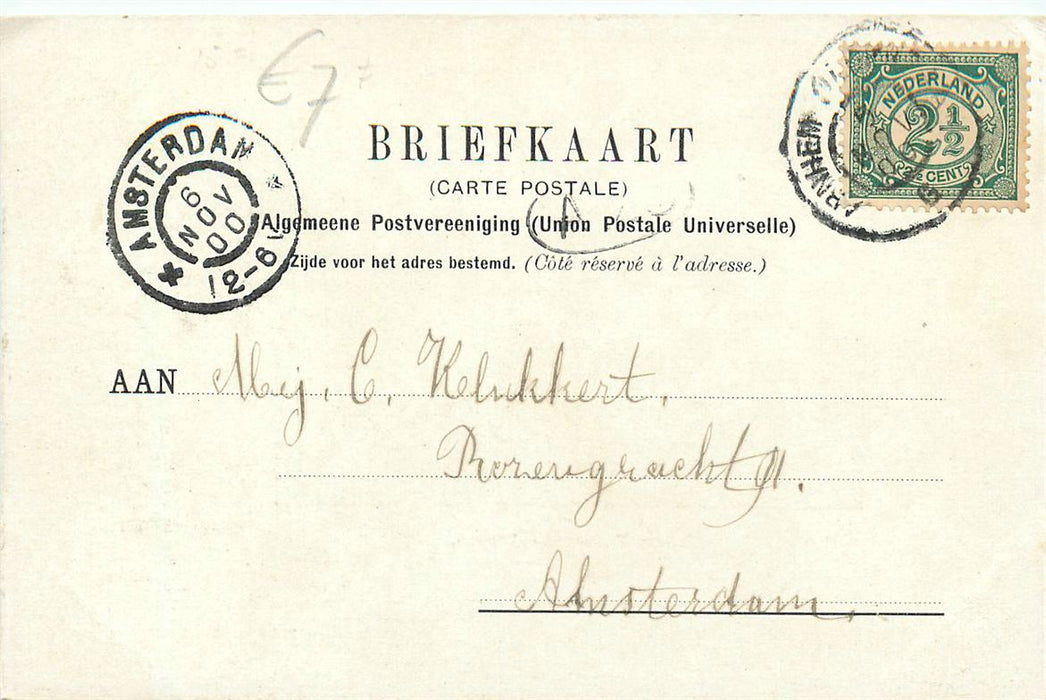 €7
BRIEFKAART
(CARTE POSTALE)
Algemeene Postvereeniging (Union Postale Universelle)
Zijde voor het adres bestemd. (Côté réservé à l'adresse.)
AMSTERDAM
6
NOV
00
12-6V
ARNHEM
NEDERLAND
2½
2½ CENT
AAN Mej. C. Klukkert.
Rozengracht 91.
Amsterdam.